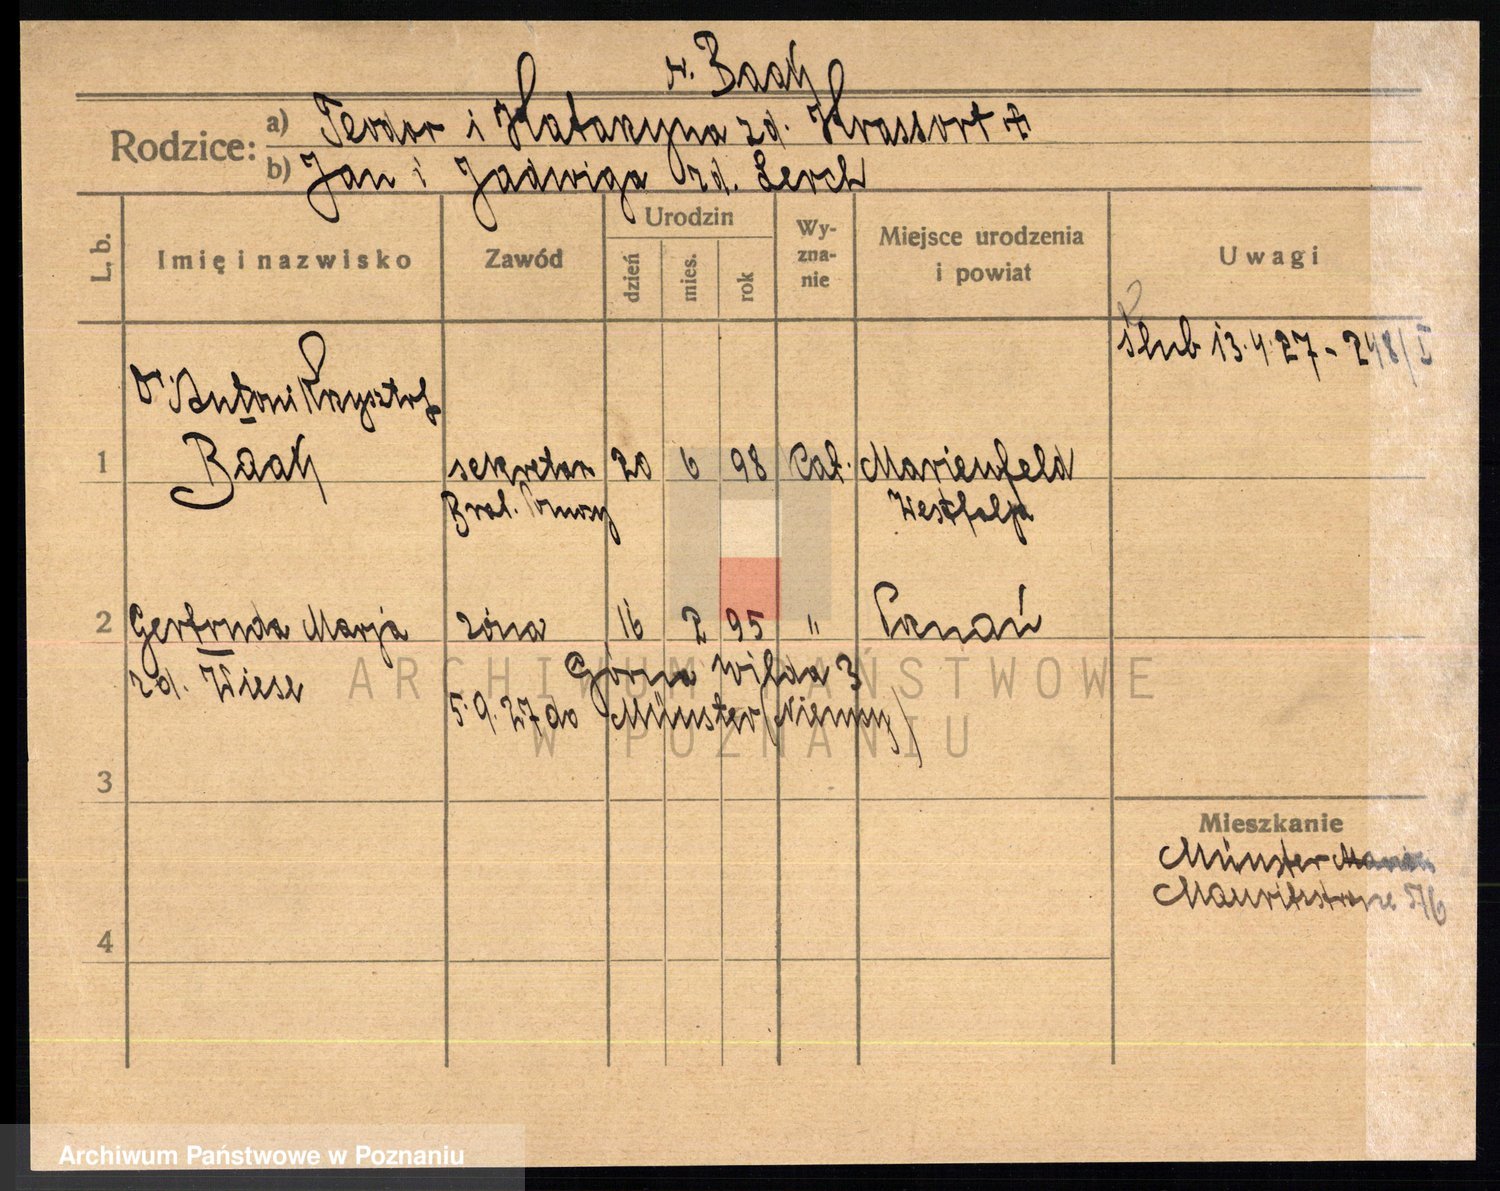 v. Baak
Rodzice: a) Teodor i Katarzyna zd. Krassort
b) Jan i Jadwiga zd. Lerch
L. b. Imię i nazwisko Zawód Urodzin dzień mies. rok Wy-zna-nie Miejsce urodzenia i powiat Uwagi
ślub 13.4.27 - 248/I
Dr Antoni Krzysztof
1 Baak sekretarz 20 6 98 Cat. Marienfeld
Westfalja
2 Gertruda Marja żona 16 2 95 " Poznań
zd. Wiese Górna Wilda 3
5.9.27 do Münster (Niemcy)
ARCHIWUM PAŃSTWOWE
W POZNANIU
3
Mieszkanie
Münster
Mauritzstrasse
4
Archiwum Państwowe w Poznaniu